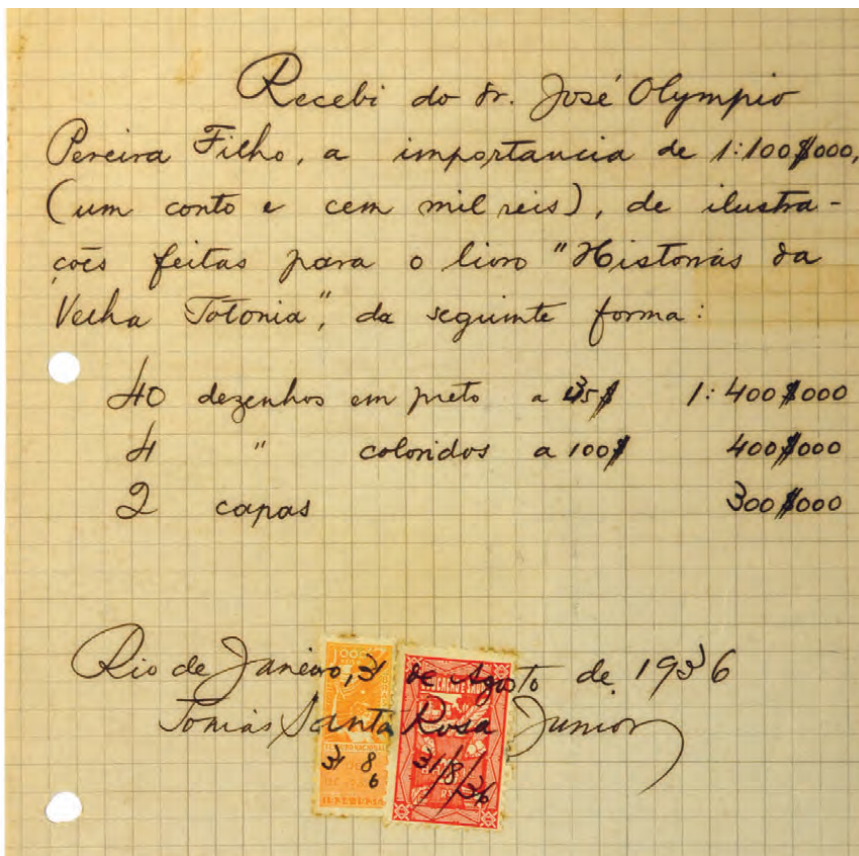 Recebi do Sr. José Olympio
Pereira Filho, a importancia de 1:100$000,
(um conto e cem mil reis), de ilustra-
ções feitas para o livro "Historias da
Velha Totonia", da seguinte forma:
40 dezenhos em preto a 35$ 1:400$000
4 " coloridos a 100$ 400$000
2 capas 300$000
Rio de Janeiro, 31 de Agosto de 1936
Tomás Santa Rosa Junior
31 8 6
31/8/36